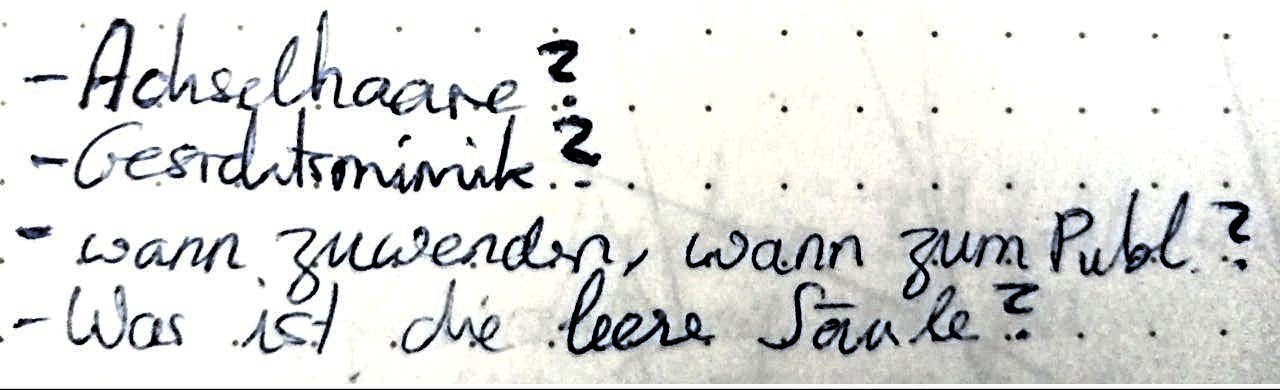 - Achselhaare?
- Gesichtsmimik?
- wann zuwenden, wann zum Publ.?
- Was ist die leere Säule?